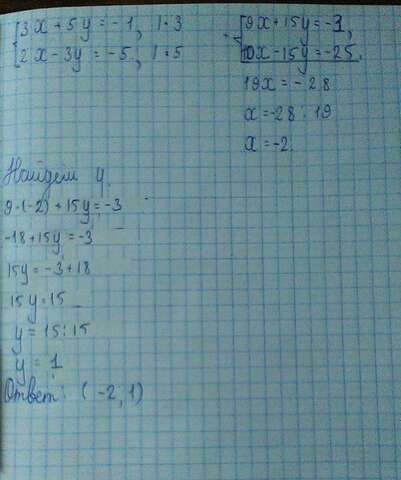 3x + 5y = -1, | · 3
2x - 3y = -5, | · 5
9x + 15y = -3,
10x - 15y = -25.
19x = -28
x = -28 : 19
x = -2.
Найдем y.
9 · (-2) + 15y = -3
-18 + 15y = -3
15y = -3 + 18
15y = 15
y = 15 : 15
y = 1
Ответ: (-2, 1)